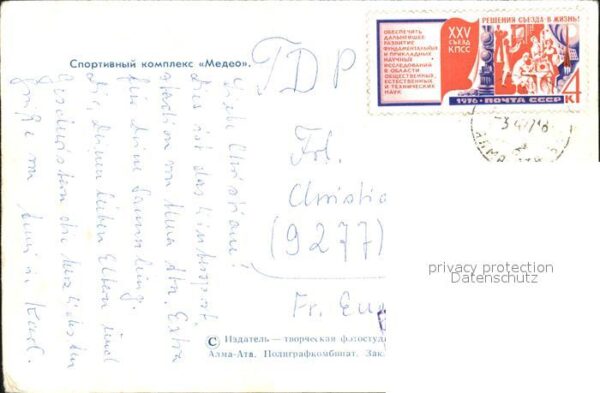 Спортивный комплекс «Медео».
TDP
РЕШЕНИЯ СЪЕЗДА В ЖИЗНЬ!
XXV
СЪЕЗД
КПСС
ОБЕСПЕЧИТЬ
ДАЛЬНЕЙШЕЕ
РАЗВИТИЕ
ФУНДАМЕНТАЛЬНЫХ
И ПРИКЛАДНЫХ
НАУЧНЫХ
ИССЛЕДОВАНИЙ
В ОБЛАСТИ
ОБЩЕСТВЕННЫХ,
ЕСТЕСТВЕННЫХ
И ТЕХНИЧЕСКИХ
НАУК
1976 · ПОЧТА СССР
4
К
Liebe Christiane!
Dies ist das Eissport-
stadion von Alma Ata. Extra
für Deine Sammlung.
Dir, Deinen lieben Eltern und
Geschwistern die herzlichsten
Grüße von
Karl.
Frl.
Christia
(9277)
Fr. Eug
privacy protection
Datenschutz
С Издатель — творческая фотостуди
Алма-Ата. Полиграфкомбинат. Зак.